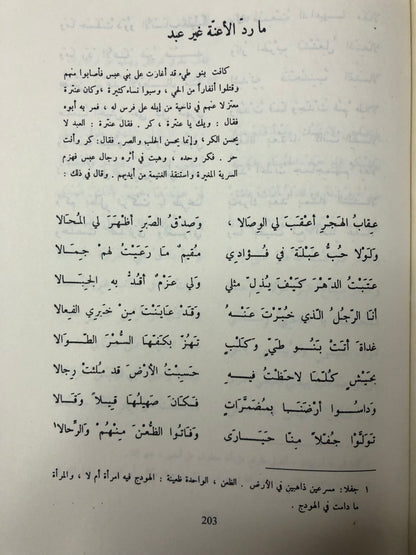 ما ردّ الأعنّة غير عبد
كانت بنو طيء قد أغارت على بني عبس فأصابوا منهم
وقتلوا أنفاراً من الحي ، وسبوا نساء كثيرة ، وكان عنترة
معتزلاً عنهم في ناحية من إبله على فرس له ، فمر به أبوه
فقال : ويك يا عنترة ، كر . فقال عنترة : العبد لا
يحسن الكر ، وإنما يحسن الحلب والصر . فقال : كر وأنت
حر . فكر وحده ، وهبت في أثره رجال عبس فهزم
السرية المغيرة واستنقذ الغنيمة من أيديهم . وقال في ذلك :
عِقابُ الهَجرِ أَعقَبَ لي الوِصالا ، وَصِدْقُ الصّبرِ أظهَرَ لي المُحالا
وَلَوْلا حُبُّ عَبْلَةَ في فُؤادي مُقيمٌ مَا رَعَيْتُ لهمْ جِمالا
عَتَبْتُ الدّهرَ كَيْفَ يُذِلّ مثلي وَلي عَزْمٌ أقُدُّ بهِ الجِبالا
أنا الرّجُلُ الّذي خُبّرْتَ عَنْهُ وَقَدْ عايَنْتَ مِنْ خَبَري الفِعالا
غَداةَ أتَتْ بَنُو طَيٍّ وَكَلْبٍ تَهُزّ بكَفّها السُّمْرَ الطّوالا
بجَيْشٍ كُلّمَا لاحَظْتُ فيهِ حَسِبْتُ الأرْضَ قد مُلئتْ رِجالا
وَداسُوا أرْضَنَا بمُضَمَّراتٍ فَكانَ صَهيلُها قِيلاً وَقَالا
تَوَلّوْا جُفَّلاً مِنّا حَيَارَى وَفَاتُوا الظُّعْنَ مِنْهُمْ وَالرِّحالا١
١ جفلا : مسرعين ذاهبين في الأرض . الظعن ، الواحدة ظعينة : الهودج فيه امرأة أم لا ، والمرأة
ما دامت في الهودج .
203